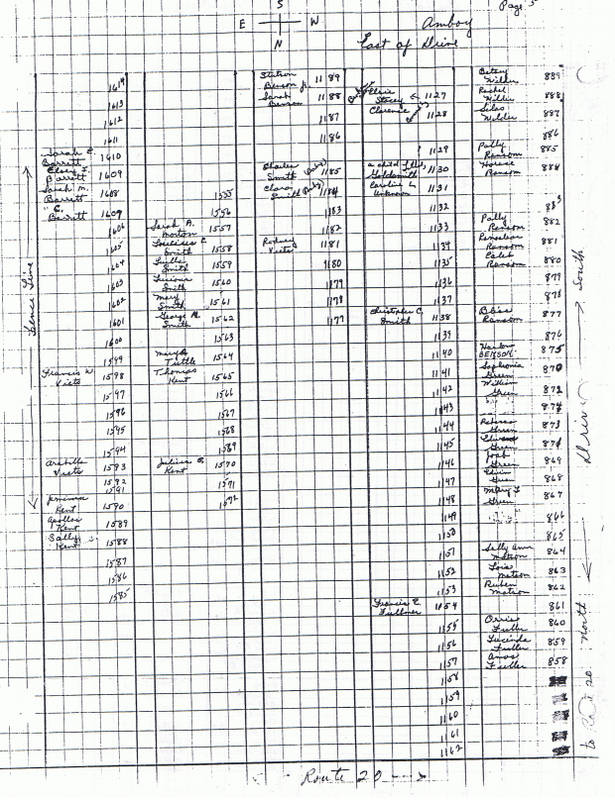 Page 5
S
E W
N
Amboy
East of Drive
Fence Line
1614
1613
1612
1611
Sarah E.
Barrett 1610
Barrett 1609
Sarah M.
Barrett 1608
Barrett 1607
1606
1605
1604
1603
1602
1601
1600
1599
Francis W.
Viets 1598
1597
1596
1595
1594
Arabilla
Viets 1593
1592
1591
Jemima
Kent 1590
Apollos
Kent 1589
Sally
Kent 1588
1587
1586
1585
1555
1556
Sarah A.
Morton 1557
Smith 1558
Smith 1559
Lucian
Smith 1560
Mary
Smith 1561
George M.
Smith 1562
1563
Mary
Tuttle 1564
Thomas
Kent 1565
1566
1567
1568
1569
Julius
Kent 1570
1571
1572
Station
Benson Jr. 1189
Sarah
Benson 1188
1187
1186
Charles
Smith 1185
Clara
Smith 1184
1183
1182
Rodney
Viets 1181
1180
1179
1178
1177
Stacey 1127
Clarence 1128
1129
a child of
Goldsmith 1130
Caroline
Unknown 1131
1132
1133
1134
1135
1136
1137
Christopher C.
Smith 1138
1139
1140
1141
1142
1143
1144
1145
1146
1147
1148
1149
1150
1151
1152
1153
Francis E.
Fullmer 1154
1155
1156
1157
1158
1159
1160
1161
1162
Betsey
Wilder 889
Rachel
Wilder 888
Silas
Wilder 887
886
Polly
Ransom 885
Horace
Ransom 884
883
Polly
Ransom 882
Ransom 881
Caleb
Ransom 880
879
878
Ransom 877
876
Harlow
BENSON 875
Sophronia
Green
William
Green 872
Rebecca
Green 873
Edward
Green
Job
Green 869
Green 868
Mary
Green 867
866
865
Sally Ann
Matson 864
Lois
Matson 863
Ruben
Matson 862
861
Orris
Fuller 860
Lucinda
Fuller 859
Amos
Fuller 858
Drive South
to Rt 20 North
Route 20